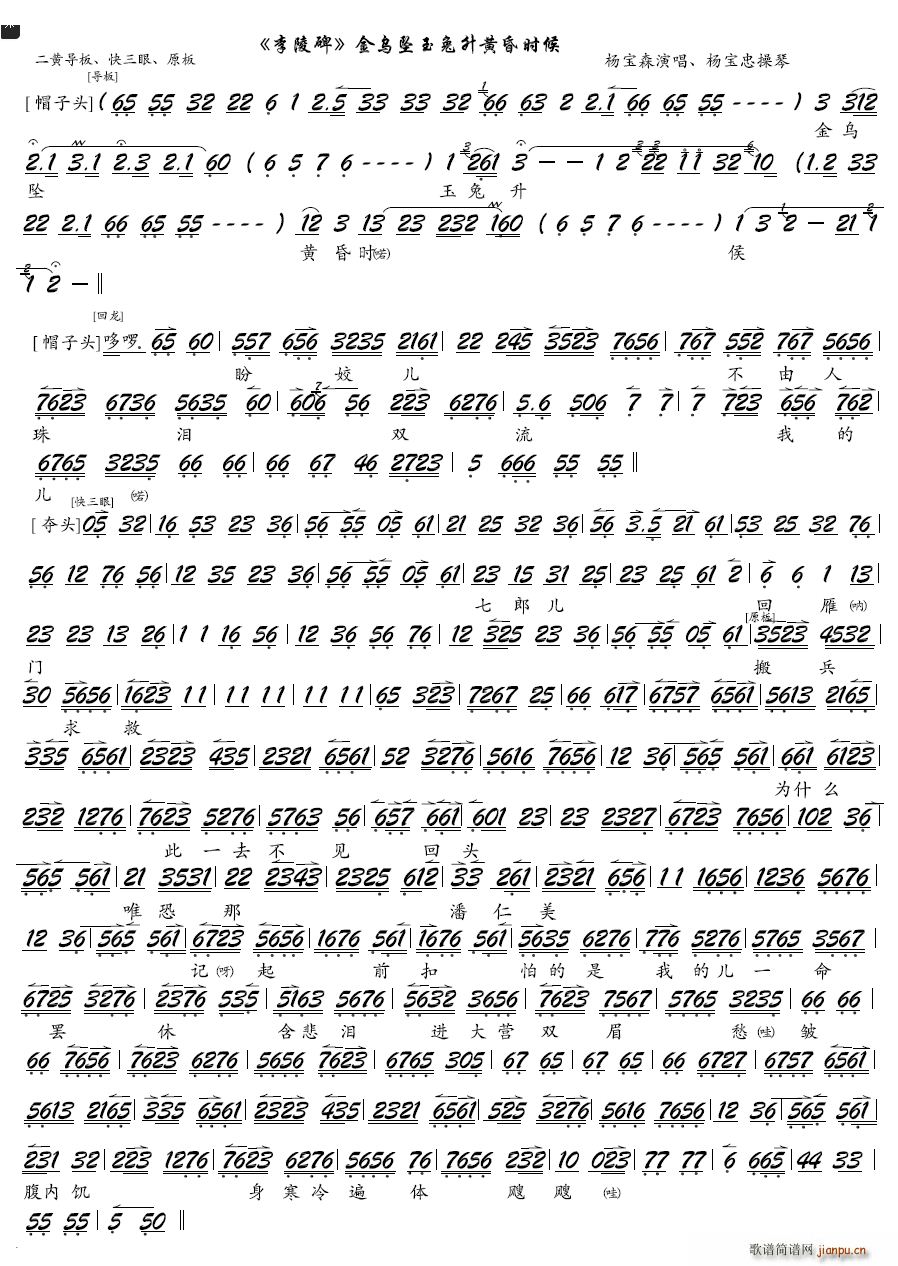 《李陵碑》金乌坠玉兔升黄昏时候
二黄导板、快三眼、原板
杨宝森演唱、杨宝忠操琴
[导板]
[帽子头] (65 55 32 22 6 1 2.5 33 33 32 1 66 63 2 2.1 66 65 55 ---- ) 3 312
金 乌
2.1 3.1 2.3 2.1 60 ( 6 5 7 6 ---- ) 1 3 261 3 — — 1 2 2 22 2 11 32 6 10 (1.2 33
坠 玉 兔 升
22 2.1 66 65 55 ---- ) 12 3 13 23 232 160 ( 6 5 7 6 ---- ) 1 3 1 2 — 21 2 1
黄 昏 时 (喏) 候
2 1 2 — ‖
[回龙]
[帽子头] 哆啰. 65 60 | 557 656 3235 2161 | 22 245 3523 7656 | 767 552 767 5656 |
盼 姣 儿 不 由 人
7623 6736 5635 60 | 7 606 56 223 6276 | 5.6 506 7 7 | 7 723 656 762 |
珠 泪 双 流 我 的
6765 3235 66 66 | 66 67 46 2723 | 5 666 55 55 ‖
儿 (喏)
[快三眼]
[夺头] 05 32 | 16 53 23 36 | 56 55 05 61 | 21 25 32 36 | 56 3.5 21 61 | 53 25 32 76 |
56 12 76 56 | 12 35 23 36 | 56 55 05 61 | 23 15 31 25 | 23 25 61 2 | 6 6 1 13 |
七 郎 儿 回 雁 (呐)
[原板]
23 23 13 26 | 1 1 16 56 | 12 36 56 76 | 12 325 23 36 | 56 55 05 61 | 3523 4532 |
门 搬 兵
30 5656 | 1623 11 | 11 11 | 11 11 | 65 323 | 7267 25 | 66 617 | 6757 6561 | 5613 2165 |
求 救
335 6561 | 2323 435 | 2321 6561 | 52 3276 | 5616 7656 | 12 36 | 565 561 | 661 6123 |
为什么
232 1276 | 7623 5276 | 5763 56 | 657 661 | 601 23 | 23 2327 | 6723 7656 | 102 36 |
此 一 去 不 见 回 头
565 561 | 21 3531 | 22 2343 | 2325 612 | 33 261 | 2321 656 | 11 1656 | 1236 5676 |
唯 恐 那 潘 仁 美
12 36 | 565 561 | 6723 5656 | 1676 561 | 1676 561 | 5635 6276 | 776 5276 | 5765 3567 |
记 (呀) 起 前 扣 怕 的 是 我 的 儿 一 命
6725 3276 | 2376 535 | 5163 5676 | 5632 3656 | 7623 7567 | 5765 3235 | 66 66 |
罢 休 含 悲 泪 进 大 营 双 眉 愁 (哇) 皱
66 7656 | 7623 6276 | 5656 7623 | 6765 305 | 67 65 | 67 65 | 66 6727 | 6757 6561 |
5613 2165 | 335 6561 | 2323 435 | 2321 6561 | 525 3276 | 5616 7656 | 12 36 | 565 561 |
231 32 | 223 1276 | 7623 6276 | 5656 76 | 7656 232 | 10 023 | 77 77 | 6 665 | 44 33 |
腹内 饥 身 寒 冷 遍 体 飕 飕 (哇)
55 55 | 5 50 ‖
歌谱简谱网 jianpu.cn